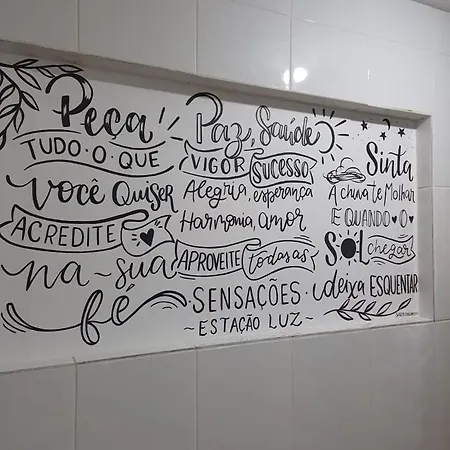 Peça!
TUDO·O·QUE
você QuiSER
ACREDITE
na-sua
fé
Paz, Saúde
VIGOR SUCESSO
Alegria, esperança
Harmonia, amor
APROVEITE todas as
·SENSAÇÕES·
~ESTAÇÃO LUZ~
Sinta
A chuva te Molhar
E QUANDO O
SOL chegar
deixa ESQUENTAR